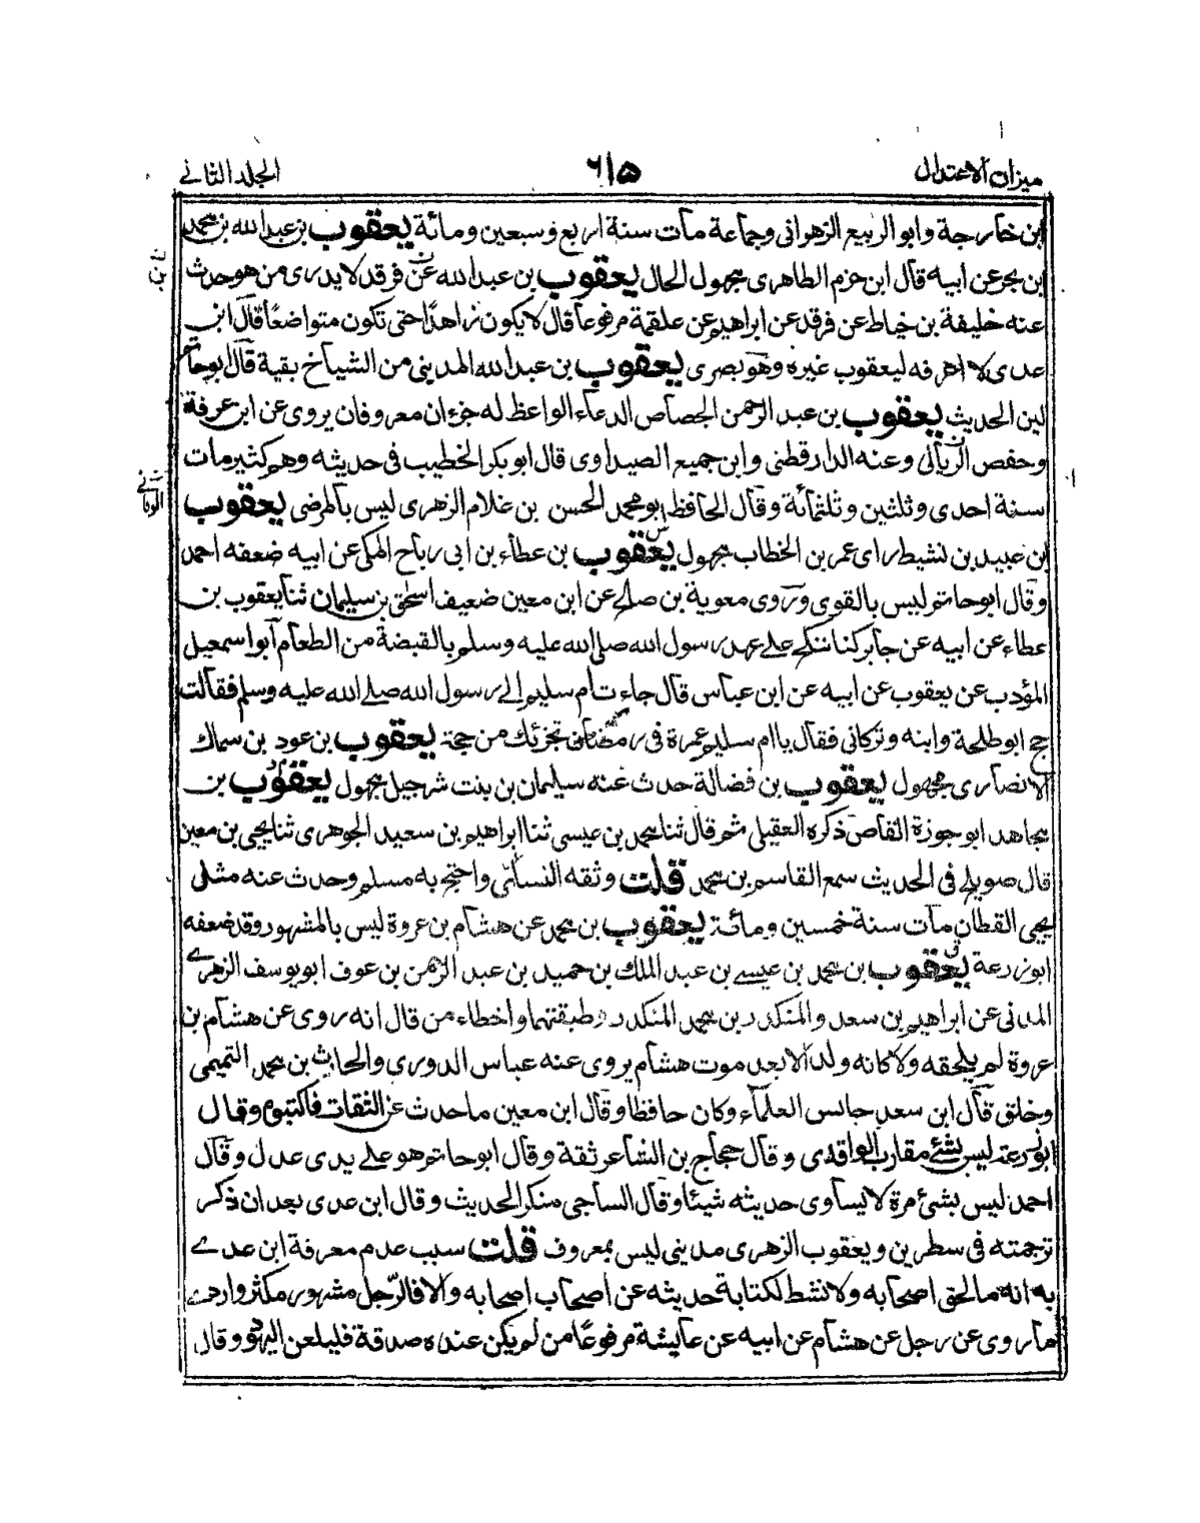 ميزان الاعتدال ٦١٥ الجلد الثاني
ابن خارجة وابو الربيع الزهرانی وجماعة مات سنة اربع وسبعين ومائة يعقوب بن عبد الله بن محمد
ابن بجر عن ابيه قال ابن حزم الطاهری مجهول الحال يعقوب بن عبد الله عن فرقد لا يدری من هو حدث
عنه خليفة بن خياط عن فرقد عن ابراهيم عن علقمة مرفوعا قال لا يكون زاهدا حتی تكون متواضعا قال ابن
عدی لا اعرفه ليعقوب غيره وهو بصری يعقوب بن عبد الله المدينی من اشياخ بقية قال ابو حاتم
لين الحديث يعقوب بن عبد الرحمن الجصاص الدعاء الواعظ له جزءان معروفان يروی عن ابن عرفة
وحفص الربالی وعنه الدارقطنی وابن جميع الصيداوی قال ابو بكر الخطيب فی حديثه وهم كثير مات
سنة احدی وثلثين وثلثمائة وقال الحافظ ابو محمد الحسن بن غلام الزهری ليس بالمرضی يعقوب
ابن عبيد بن نشيط رای عمر بن الخطاب مجهول يعقوب بن عطاء بن ابی رباح المكی عن ابيه ضعفه احمد
وقال ابو حاتم ليس بالقوی وروی معوية بن صالح عن ابن معين ضعيف اسحق بن سليمان ثنا يعقوب بن
عطاء عن ابيه عن جابر كنا ننكح علے عهد رسول الله صلے الله عليه وسلم بالقبضة من الطعام ابو اسمعيل
المؤدب عن يعقوب عن ابيه عن ابن عباس قال جاءت ام سليم الے رسول الله صلے الله عليه وسلم فقالت
حج ابو طلحة وابنه وتركانی فقال يا ام سليم عمرة فی رمضان تجزئك من حجة يعقوب بن عود بن سماك
الانصاری مجهول يعقوب بن فضالة حدث عنه سليمان بن بنت شرحبيل مجهول يعقوب بن
مجاهد ابو حزرة القاص ذكره العقيلی ثم قال ثنا محمد بن عيسی ثنا ابراهيم بن سعيد الجوهری ثنا يحيی بن معين
قال صويلح فی الحديث سمع القاسم بن محمد قلت وثقه النسائی واحتج به مسلم وحدث عنه مثل
يحيی القطان مات سنة خمسين ومائة يعقوب بن محمد عن هشام بن عروة ليس بالمشهور وقد ضعفه
ابو زرعة يعقوب بن محمد بن عيسے بن عبد الملك بن حميد بن عبد الرحمن بن عوف ابو يوسف الزهرے
المدنی عن ابراهيم بن سعد والمنكدر بن محمد المنكدر وطبقتهما واخطاء من قال انه روی عن هشام بن
عروة لم يلحقه ولا كانه ولد الا بعد موت هشام يروی عنه عباس الدوری والحارث بن محمد التميمی
وخلق قال ابن سعد جالس العلماء وكان حافظا وقال ابن معين ما حدث عن الثقات فاكتبوه وقال
ابو زرعة ليس بشئ مقارب الواقدی وقال حجاج بن الشاعر ثقة وقال ابو حاتم هو علے يدی عدل وقال
احمد ليس بشئ مرة لا يساوی حديثه شيئا وقال الساجی منكر الحديث وقال ابن عدی بعد ان ذكر
ترجمته فی سطرين ويعقوب الزهری مدينی ليس بمعروف قلت سبب عدم معرفة ابن عدے
به انه ما لحق اصحابه ولا نشط لكتابة حديثه عن اصحاب اصحابه والا فالرجل مشهور مكثر واردے
ما روی عن رجل عن هشام عن ابيه عن عايشة مرفوعا من لم يكن عنده صدقة فليلعن اليهود وقال